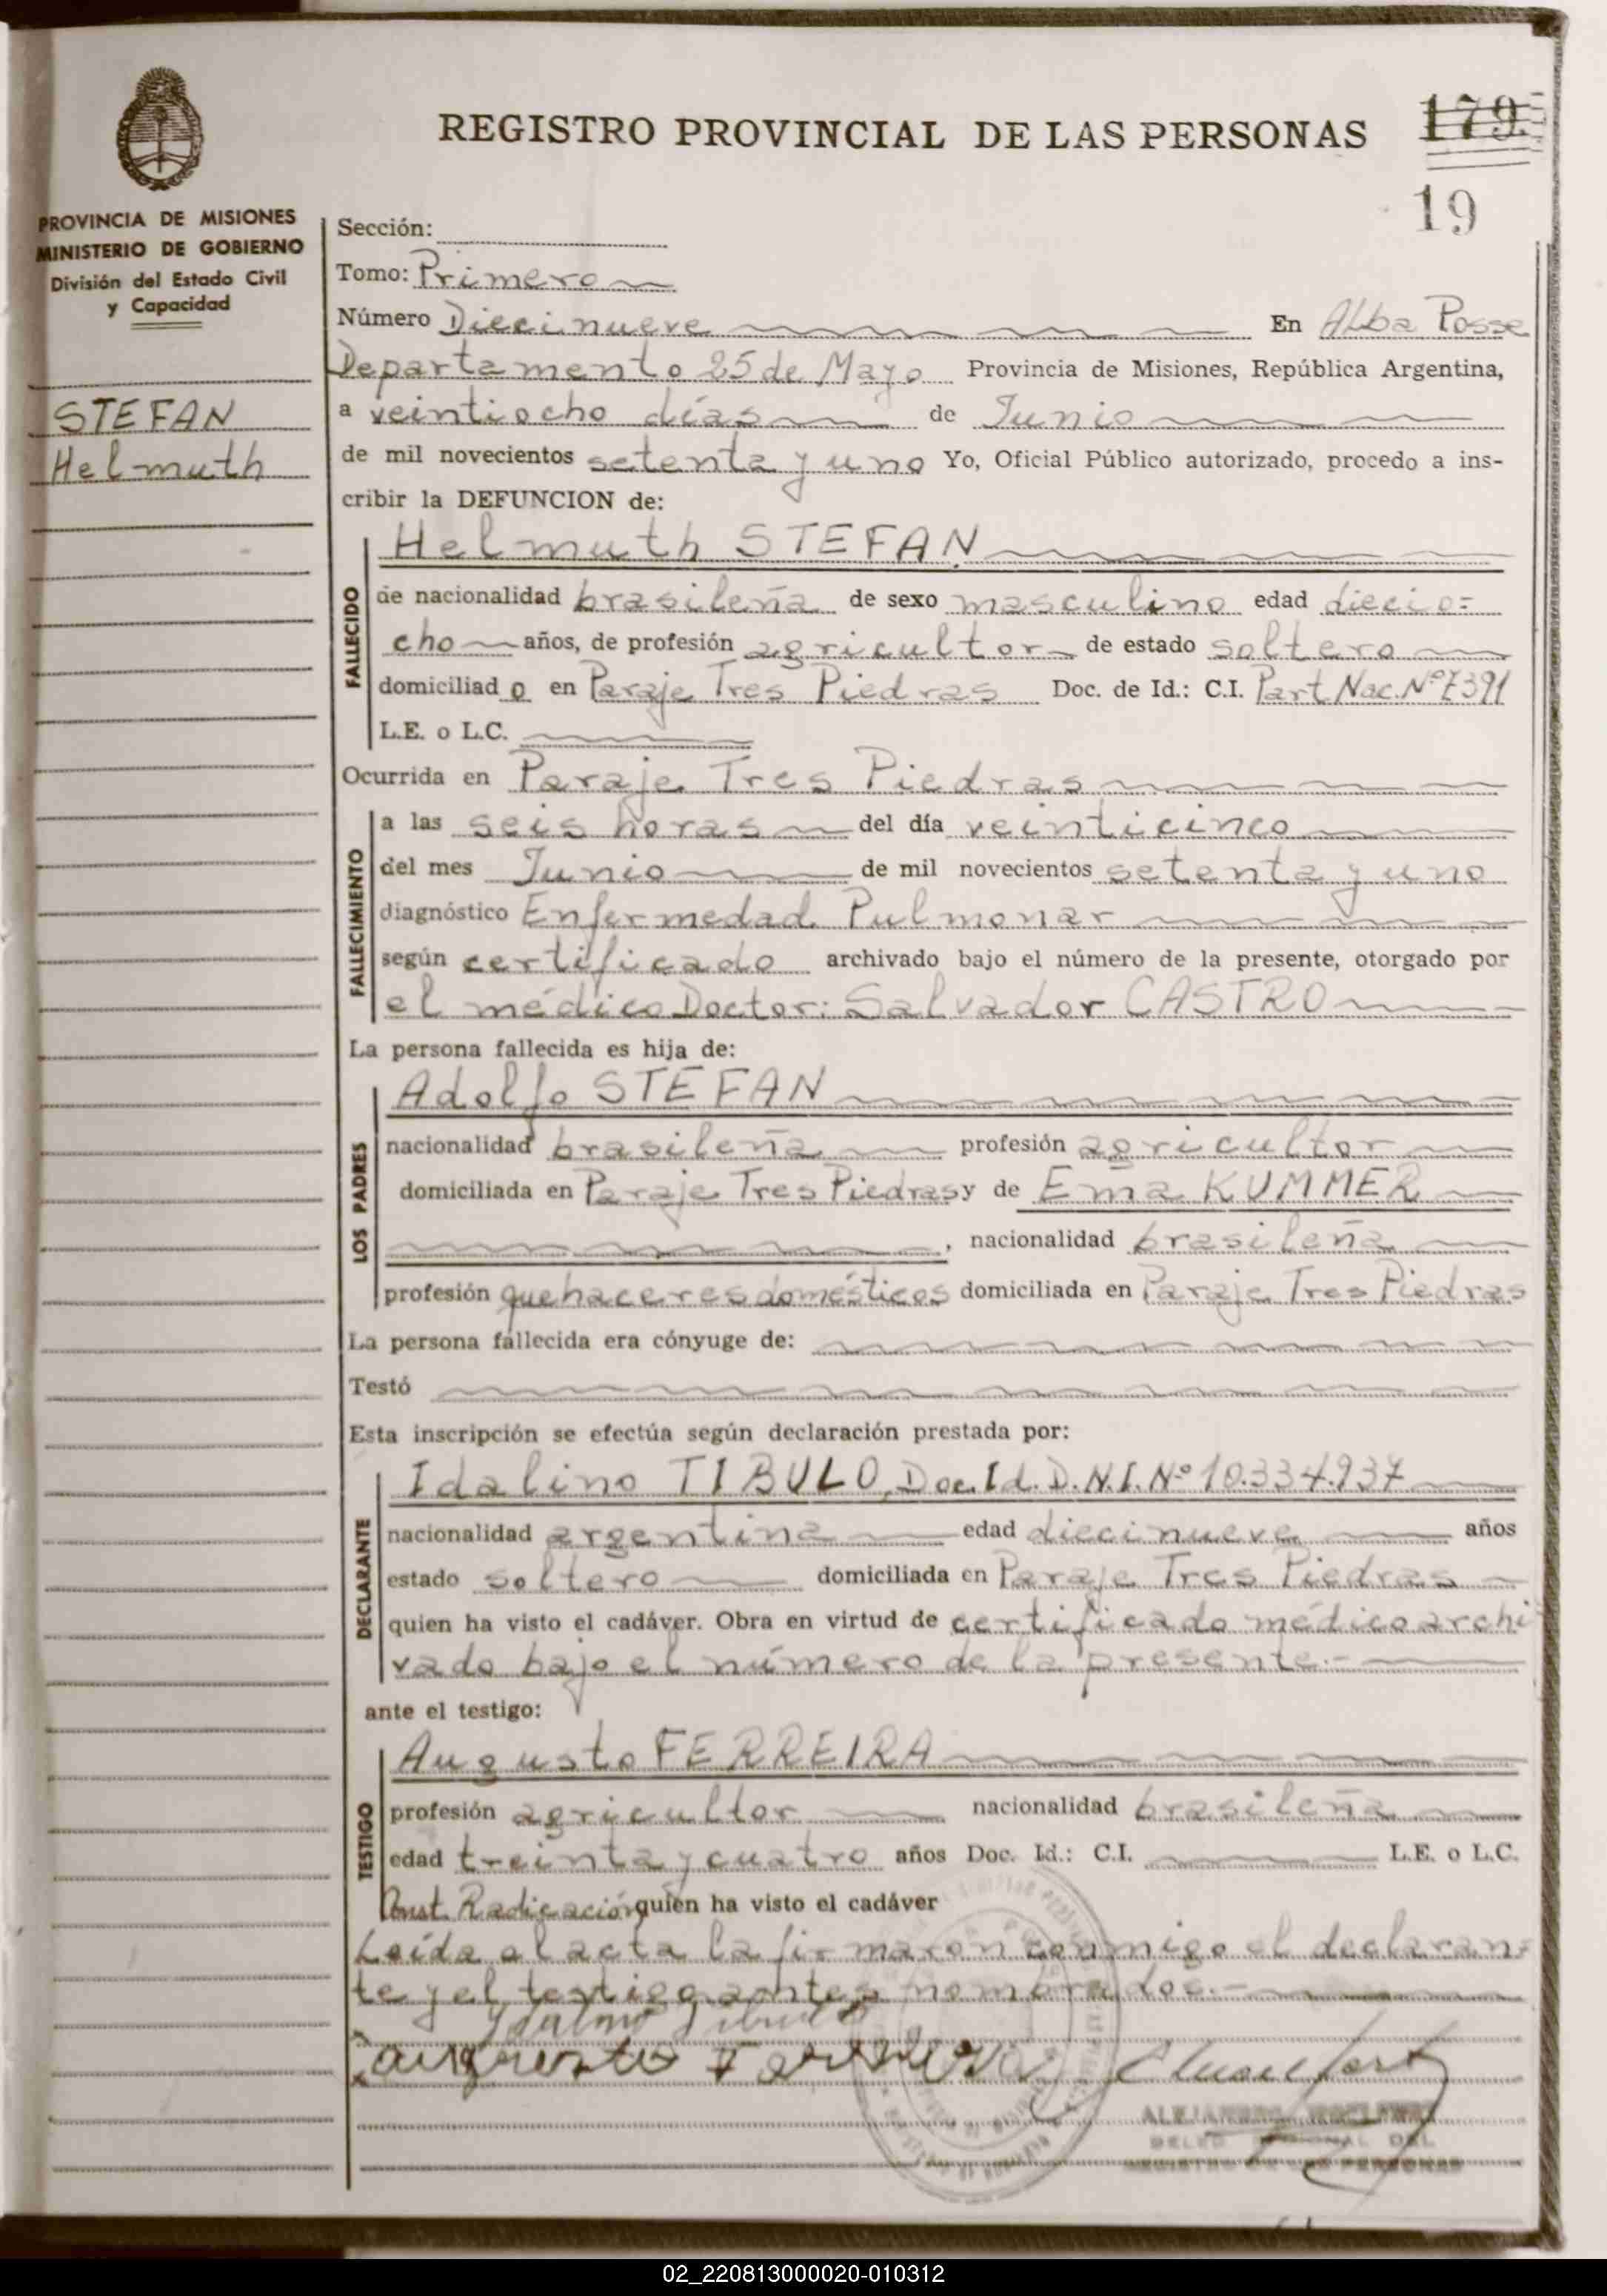 REGISTRO PROVINCIAL DE LAS PERSONAS
179
19
PROVINCIA DE MISIONES
MINISTERIO DE GOBIERNO
División del Estado Civil
y Capacidad
STEFAN
Helmuth
Sección:
Tomo: Primero
Número Diecinueve En Alba Posse
Departamento 25 de Mayo Provincia de Misiones, República Argentina,
a veintiocho días de Junio
de mil novecientos setenta y uno Yo, Oficial Público autorizado, procedo a ins-
cribir la DEFUNCION de:
FALLECIDO
Helmuth STEFAN
de nacionalidad brasileña de sexo masculino edad diecio=
cho años, de profesión agricultor de estado soltero
domiciliado en Paraje Tres Piedras Doc. de Id.: C.I. Part. Nac. Nº 7391
L.E. o L.C.
Ocurrida en Paraje Tres Piedras
FALLECIMIENTO
a las seis horas del día veinticinco
del mes Junio de mil novecientos setenta y uno
diagnóstico Enfermedad Pulmonar
según certificado archivado bajo el número de la presente, otorgado por
el médico Doctor: Salvador CASTRO
La persona fallecida es hija de:
LOS PADRES
Adolfo STEFAN
nacionalidad brasileña profesión agricultor
domiciliada en Paraje Tres Piedras y de Ema KUMMER
, nacionalidad brasileña
profesión quehaceres domésticos domiciliada en Paraje Tres Piedras
La persona fallecida era cónyuge de:
Testó
Esta inscripción se efectúa según declaración prestada por:
DECLARANTE
Idalino TIBULO, Doc. Id. D.N.I. Nº 10.334.937
nacionalidad argentina edad diecinueve años
estado soltero domiciliada en Paraje Tres Piedras
quien ha visto el cadáver. Obra en virtud de certificado médico archi
vado bajo el número de la presente.-
ante el testigo:
TESTIGO
Augusto FERREIRA
profesión agricultor nacionalidad brasileña
edad treinta y cuatro años Doc. Id.: C.I. L.E. o L.C.
Const. Radicación quien ha visto el cadáver
Leída el acta la firmaron conmigo el declaran=
te y el testigo antes nombrados.-
augusto Ferreira
REGISTRO DE LAS PERSONAS
02_220813000020-010312